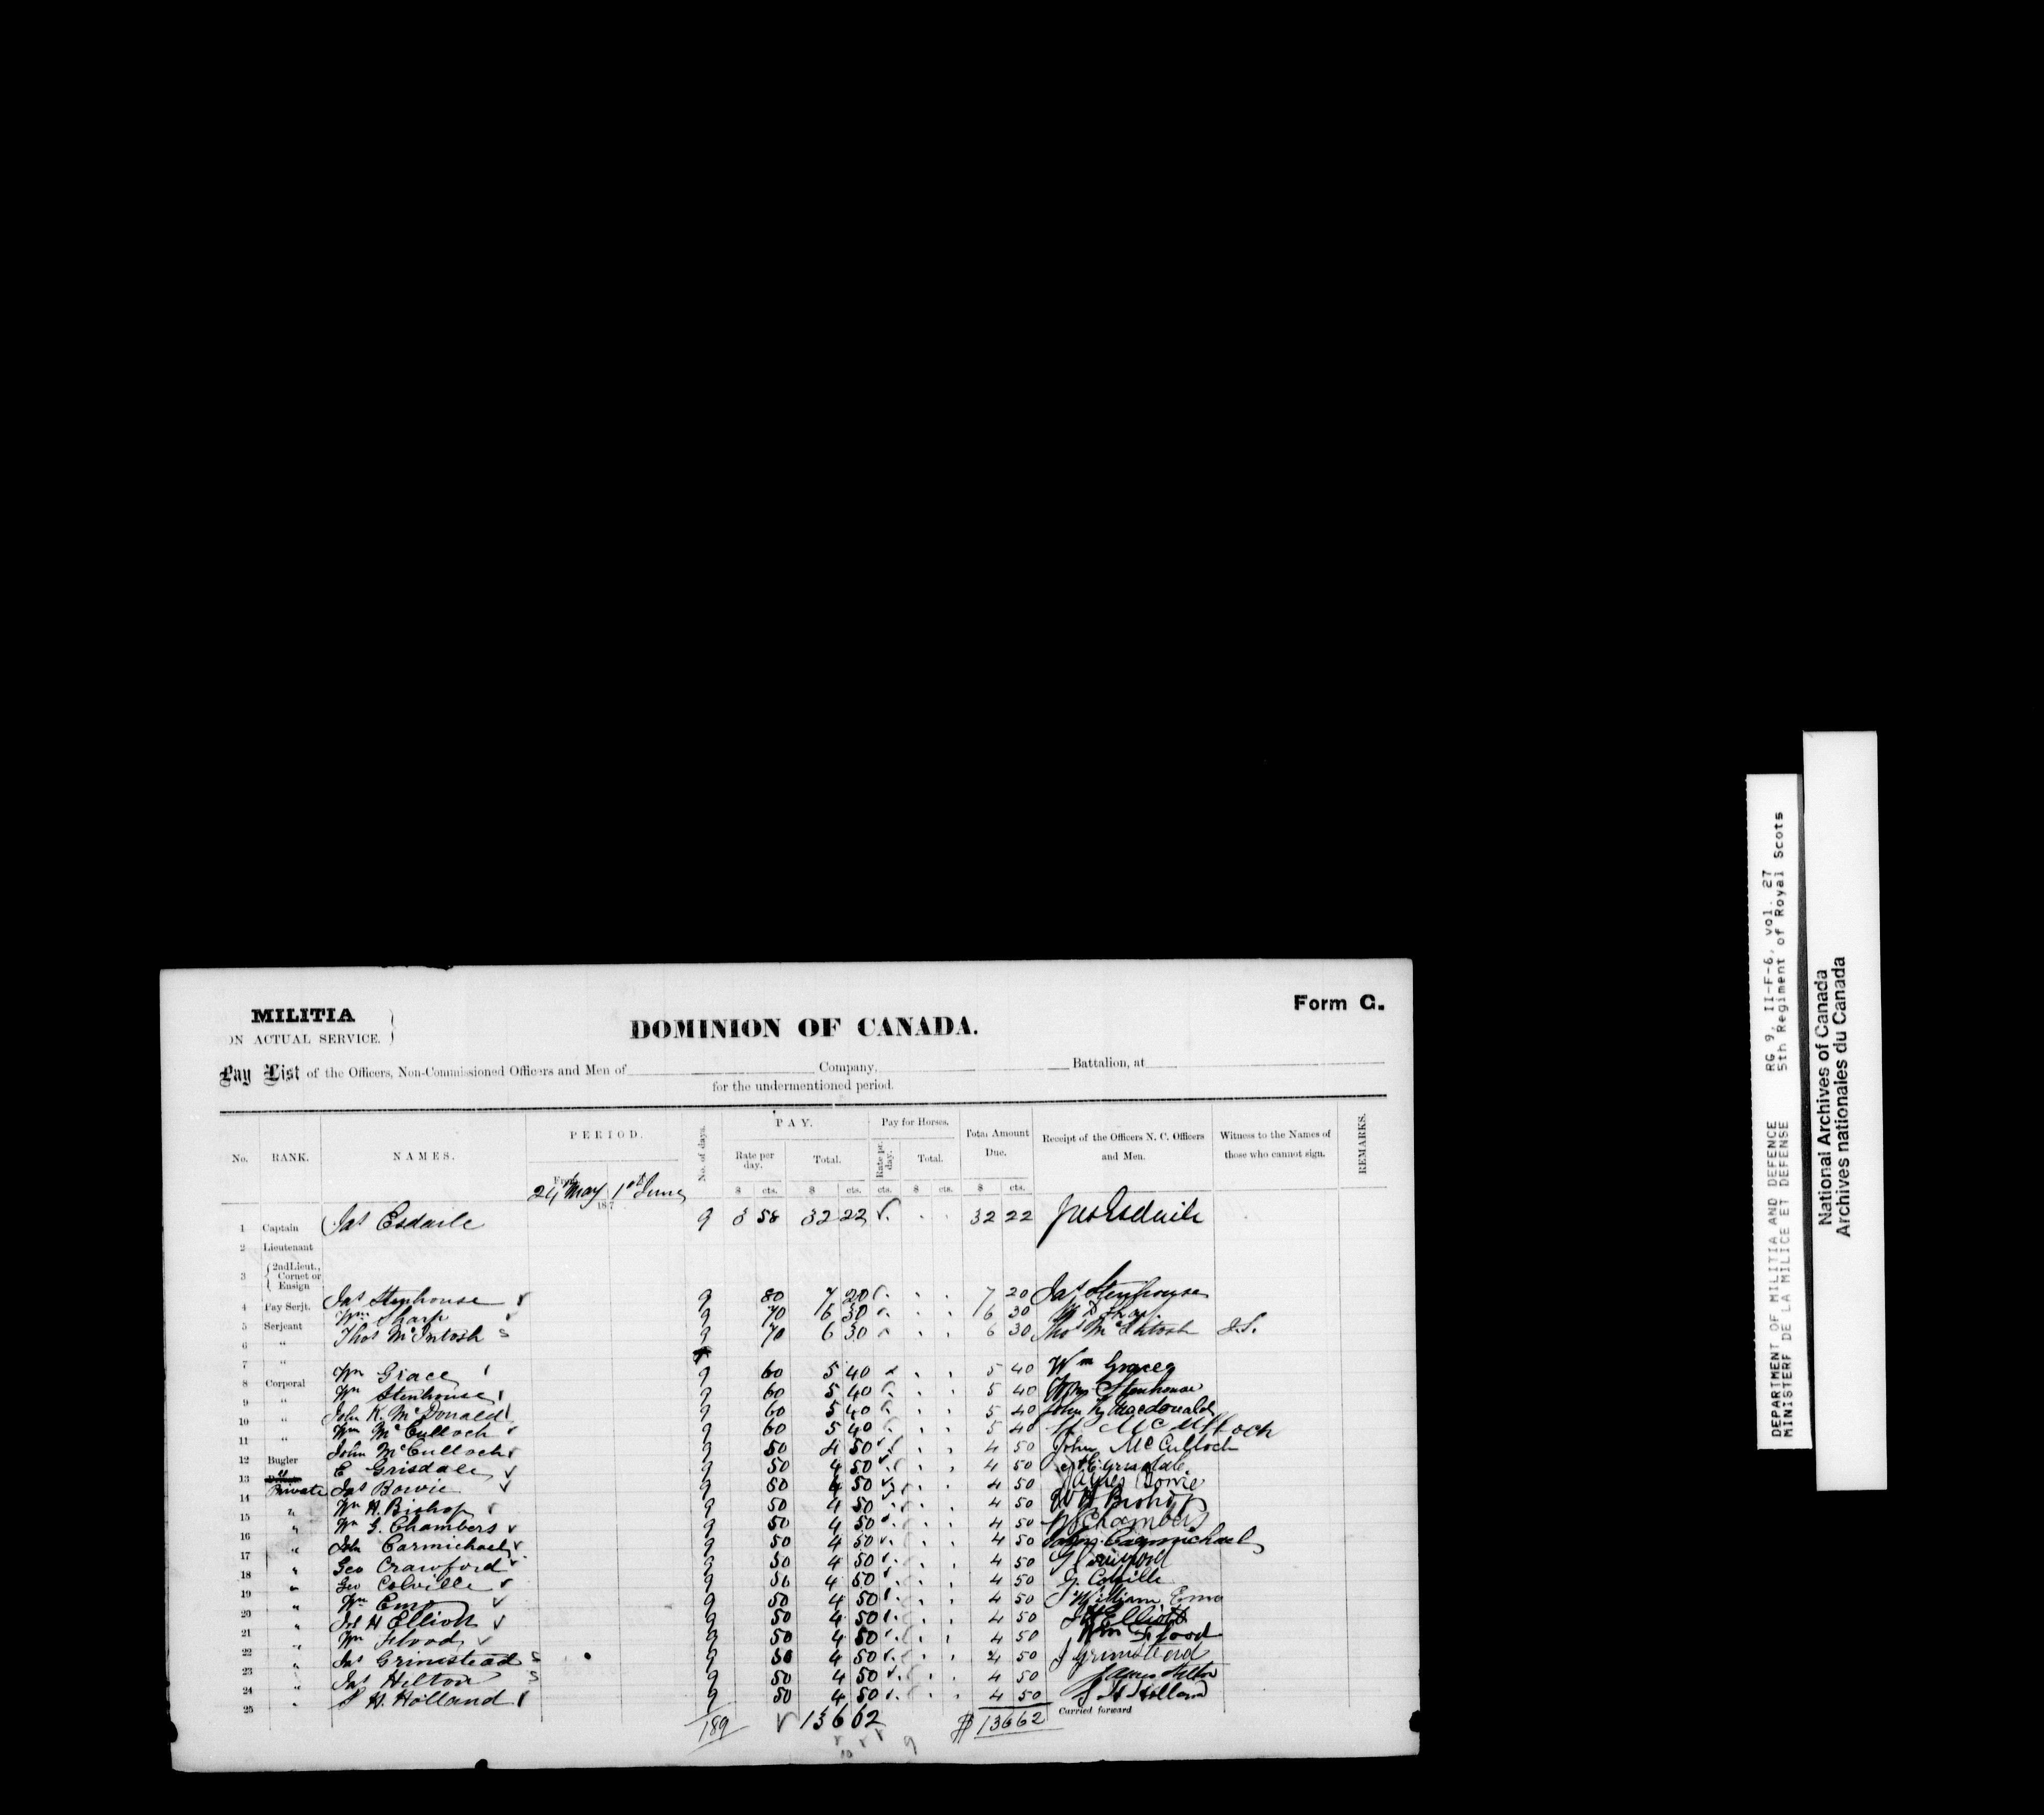 MILITIA
ON ACTUAL SERVICE.
Form G.
DOMINION OF CANADA.
Pay List of the Officers, Non-Commissioned Officers and Men of Company, Battalion, at
for the undermentioned period.
No. RANK. NAMES. PERIOD. No. of days. PAY. Pay for Horses. Total Amount Due. Receipt of the Officers N. C. Officers and Men. Witness to the Names of those who cannot sign. REMARKS.
Rate per day. Total. Rate pr. day. Total.
$ cts. $ cts. cts. $ cts. $ cts.
From 24th May 1st June
187
1 Captain Jas Esdaile 9 3 58 32 22 32 22 Jas Esdaile
2 Lieutenant
3 2nd Lieut., Cornet or Ensign
4 Pay Serjt. Jas Stenhouse 9 80 7 20 7 20 Jas Stenhouse
5 Serjeant Wm Sharp 9 70 6 30 6 30
6 " Thos McIntosh S 9 70 6 30 6 30 Thos McIntosh J.S.
7 "
8 Corporal Wm Gracey 9 60 5 40 5 40 Wm Gracey
9 " Wm Stenhouse 9 60 5 40 5 40 Wm Stenhouse
10 " John K. McDonald 9 60 5 40 5 40 John K Macdonald
11 " Wm McCulloch 9 60 5 40 5 40 McCulloch
12 Bugler John McCulloch 9 50 4 50 4 50 John McCulloch
13 " E Grisdale 9 50 4 50 4 50 E Grisdale
14 Private Jas Bowie 9 50 4 50 4 50 James Bowie
15 " Wm H. Bishop 9 50 4 50 4 50 W H Bishop
16 " Wm G. Chambers 9 50 4 50 4 50 W Chambers
17 " John Carmichael 9 50 4 50 4 50 John Carmichael
18 " Geo Crawford 9 50 4 50 4 50 G Crawford
19 " Geo Colville 9 50 4 50 4 50 G. Colville
20 " Wm 9 50 4 50 4 50 William
21 " Jos H Elliott 9 50 4 50 4 50 J H Elliott
22 " Wm Flood 9 50 4 50 4 50 Wm Flood
23 " Jas Grimstead S 9 50 4 50 4 50 J Grimstead
24 " Jas Hilton S 9 50 4 50 4 50 James Hilton
25 " S H. Holland 9 50 4 50 4 50 S H Holland
189 136 62 $ 136 62 Carried forward
DEPARTMENT OF MILITIA AND DEFENCE RG 9, II-F-6, vol. 27
MINISTERE DE LA MILICE ET DEFENSE 5th Regiment of Royal Scots
National Archives of Canada
Archives nationales du Canada